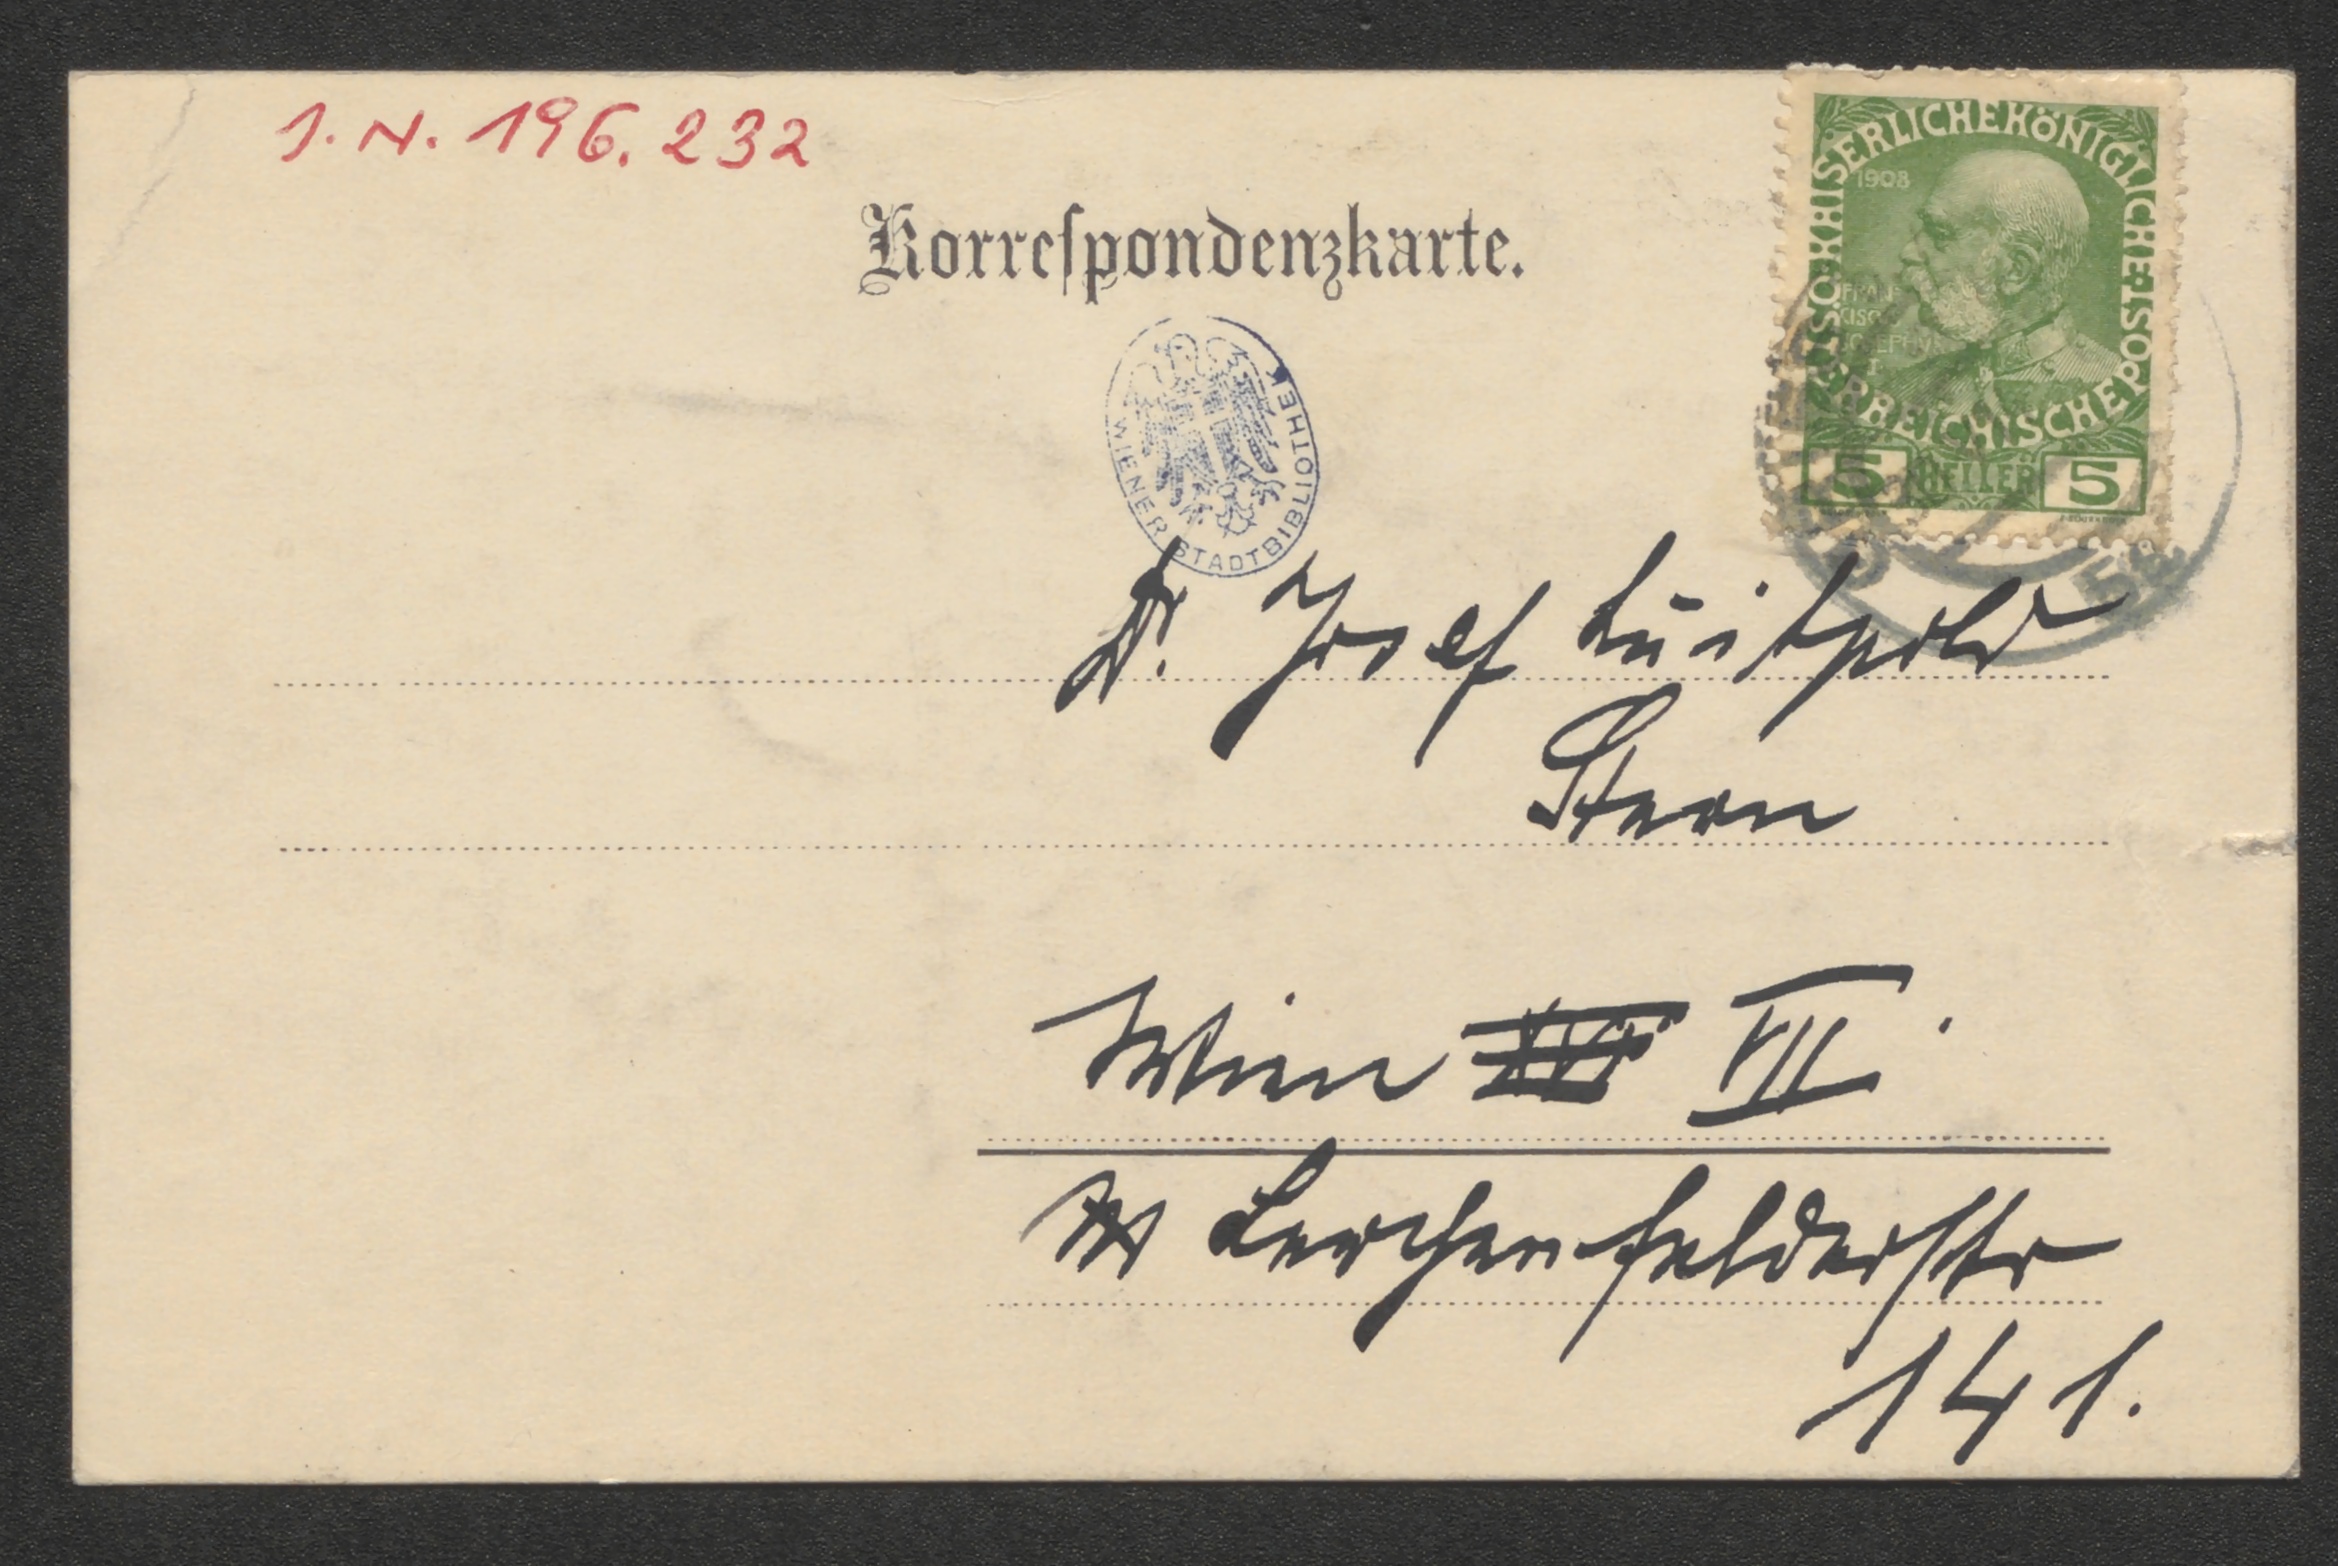 J. N. 196.232
Korrespondenzkarte.
KAISERLICHE KÖNIGLICHE ÖSTERREICHISCHE POST
1908
5 HELLER 5
WIENER STADTBIBLIOTHEK
Dr. Josef Luitpold
Stern
Wien VII.
Lerchenfelderstr
141.